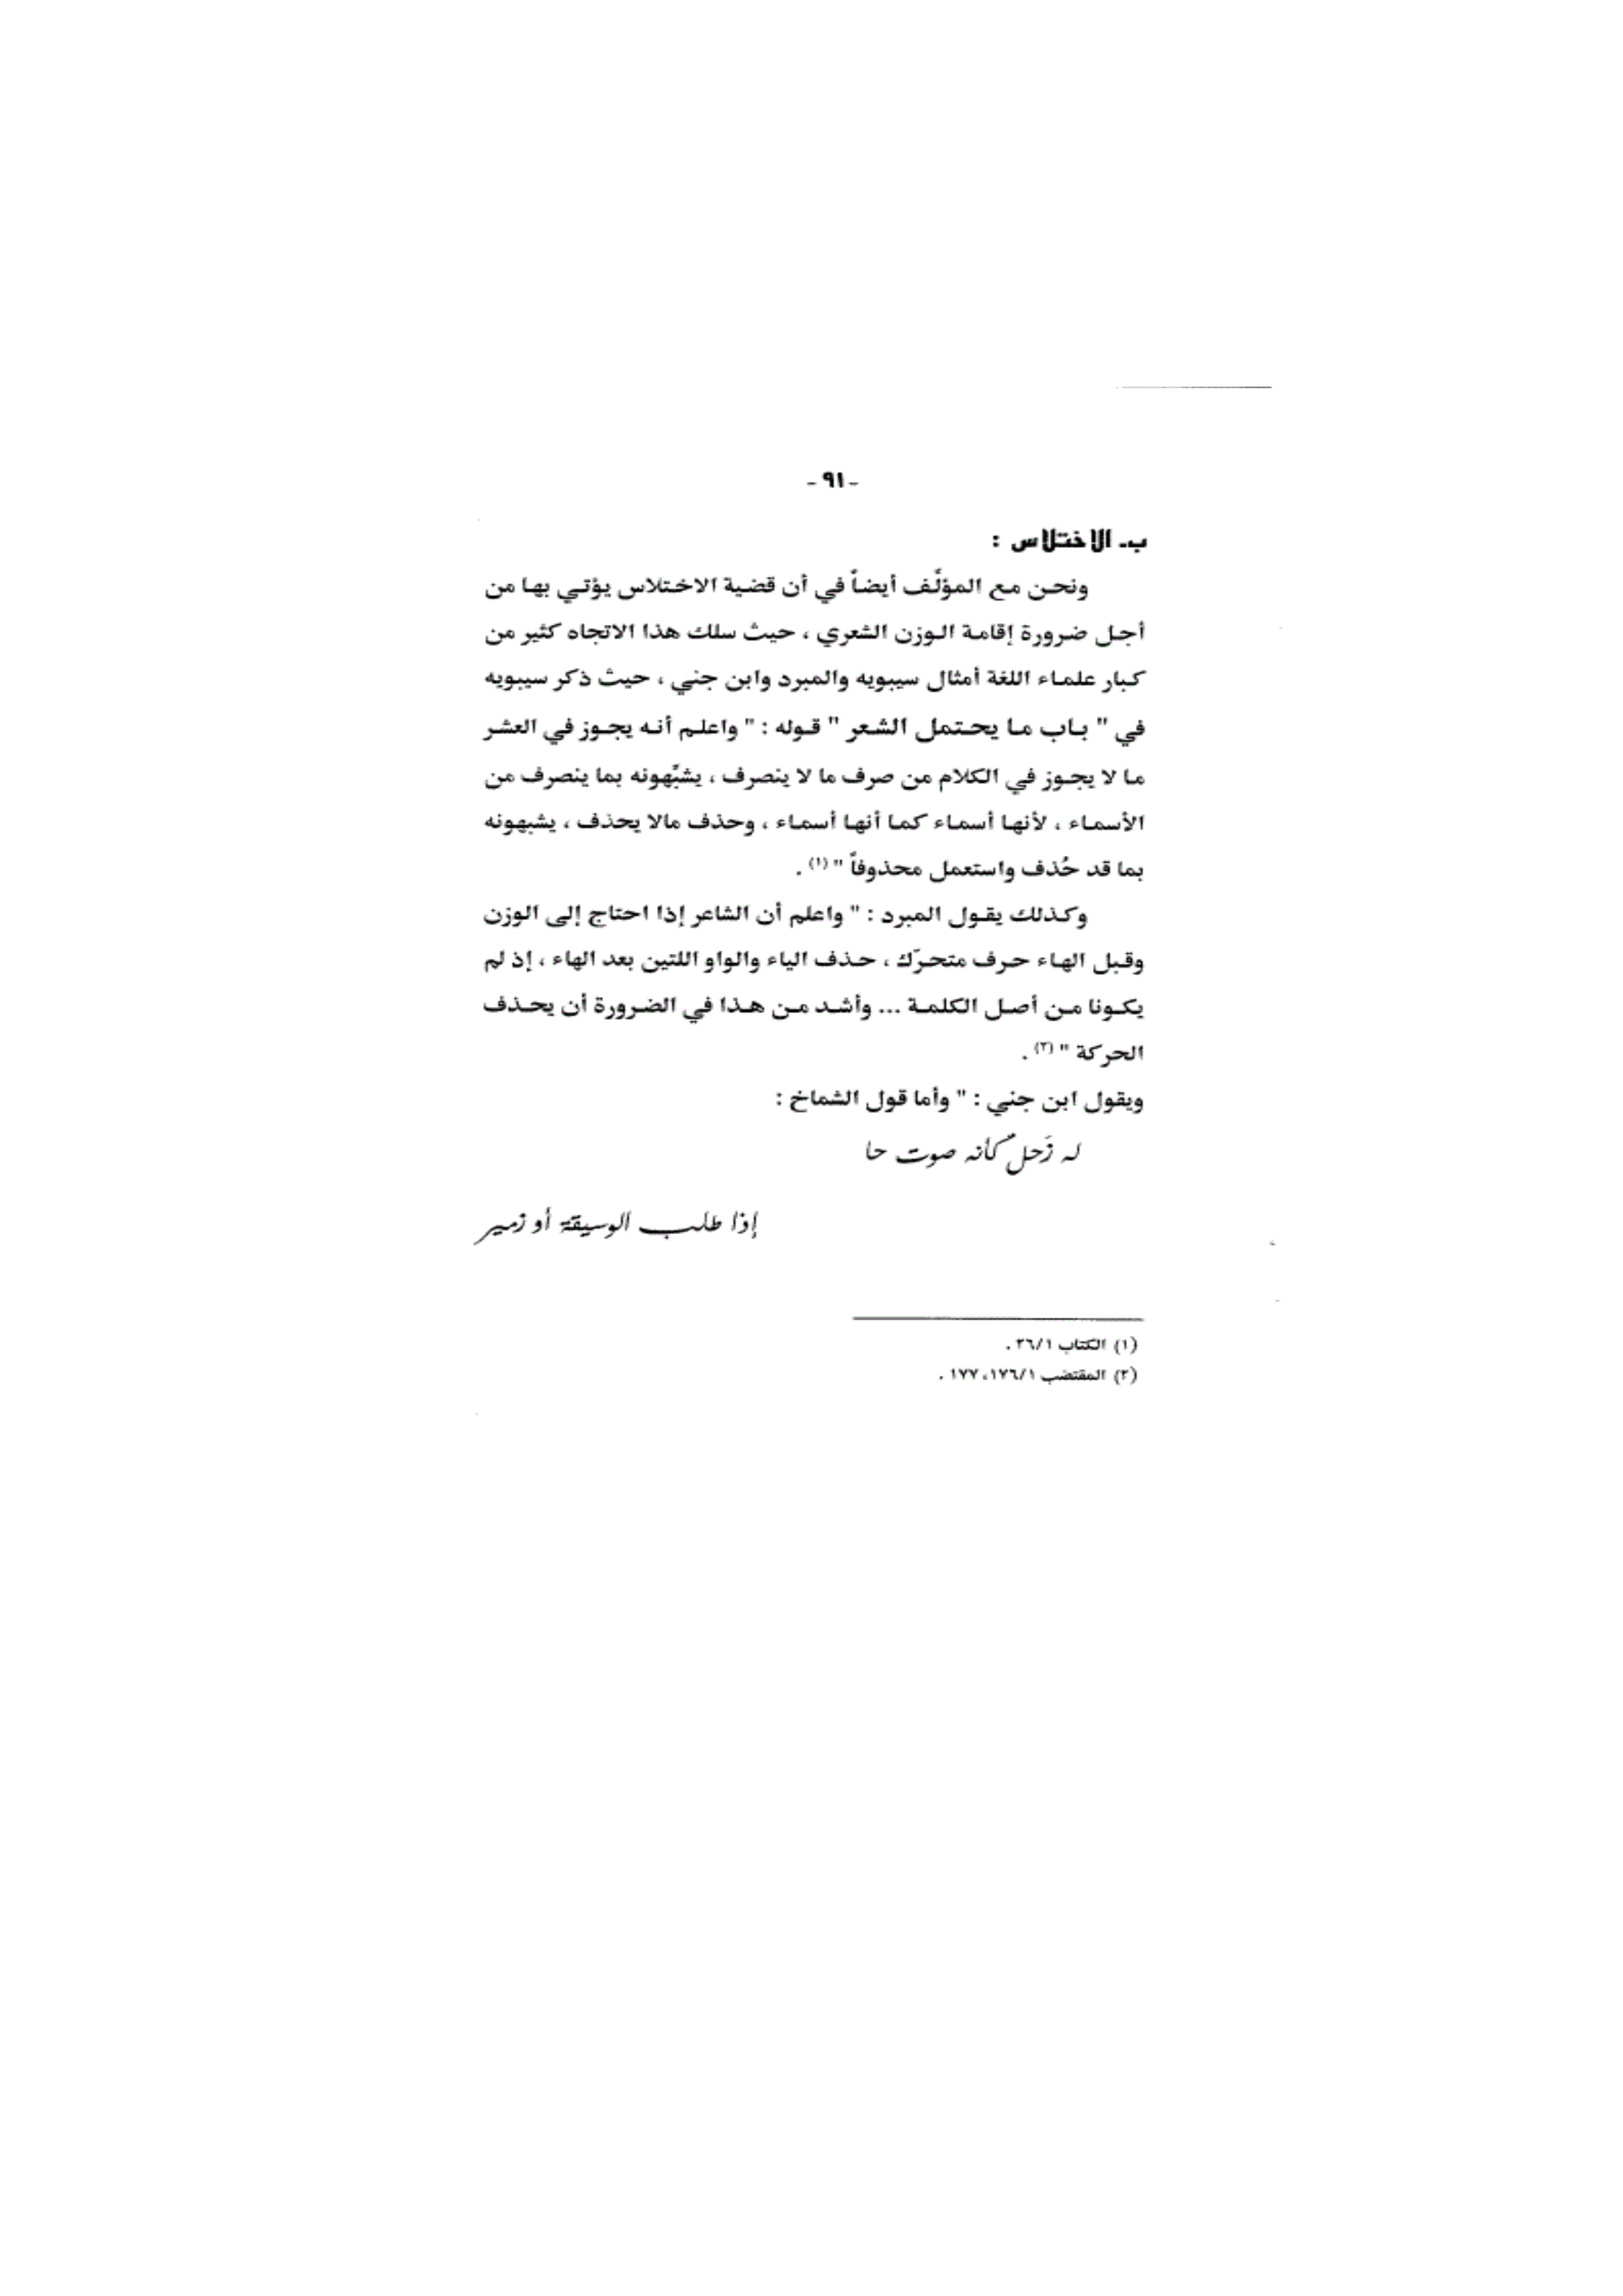 - ٩١ -
ب- الاختلاس :
ونحن مع المؤلِّف أيضاً في أن قضية الاختلاس يؤتي بها من
أجل ضرورة إقامة الوزن الشعري ، حيث سلك هذا الاتجاه كثير من
كبار علماء اللغة أمثال سيبويه والمبرد وابن جني ، حيث ذكر سيبويه
في " باب ما يحتمل الشعر " قوله : " واعلم أنه يجوز في العشر
ما لا يجوز في الكلام من صرف ما لا ينصرف ، يشبِّهونه بما ينصرف من
الأسماء ، لأنها أسماء كما أنها أسماء ، وحذف مالا يحذف ، يشبهونه
بما قد حُذف واستعمل محذوفاً " (١) .
وكذلك يقول المبرد : " واعلم أن الشاعر إذا احتاج إلى الوزن
وقبل الهاء حرف متحرّك ، حذف الياء والواو اللتين بعد الهاء ، إذ لم
يكونا من أصل الكلمة ... وأشد من هذا في الضرورة أن يحذف
الحركة " (٢) .
ويقول ابن جني : " وأما قول الشماخ :
له زَحلٌ كأنه صوت حا
إذا طلب الوسيقة أو زمير
(١) الكتاب ٢٦/١ .
(٢) المقتضب ١٧٦/١، ١٧٧ .